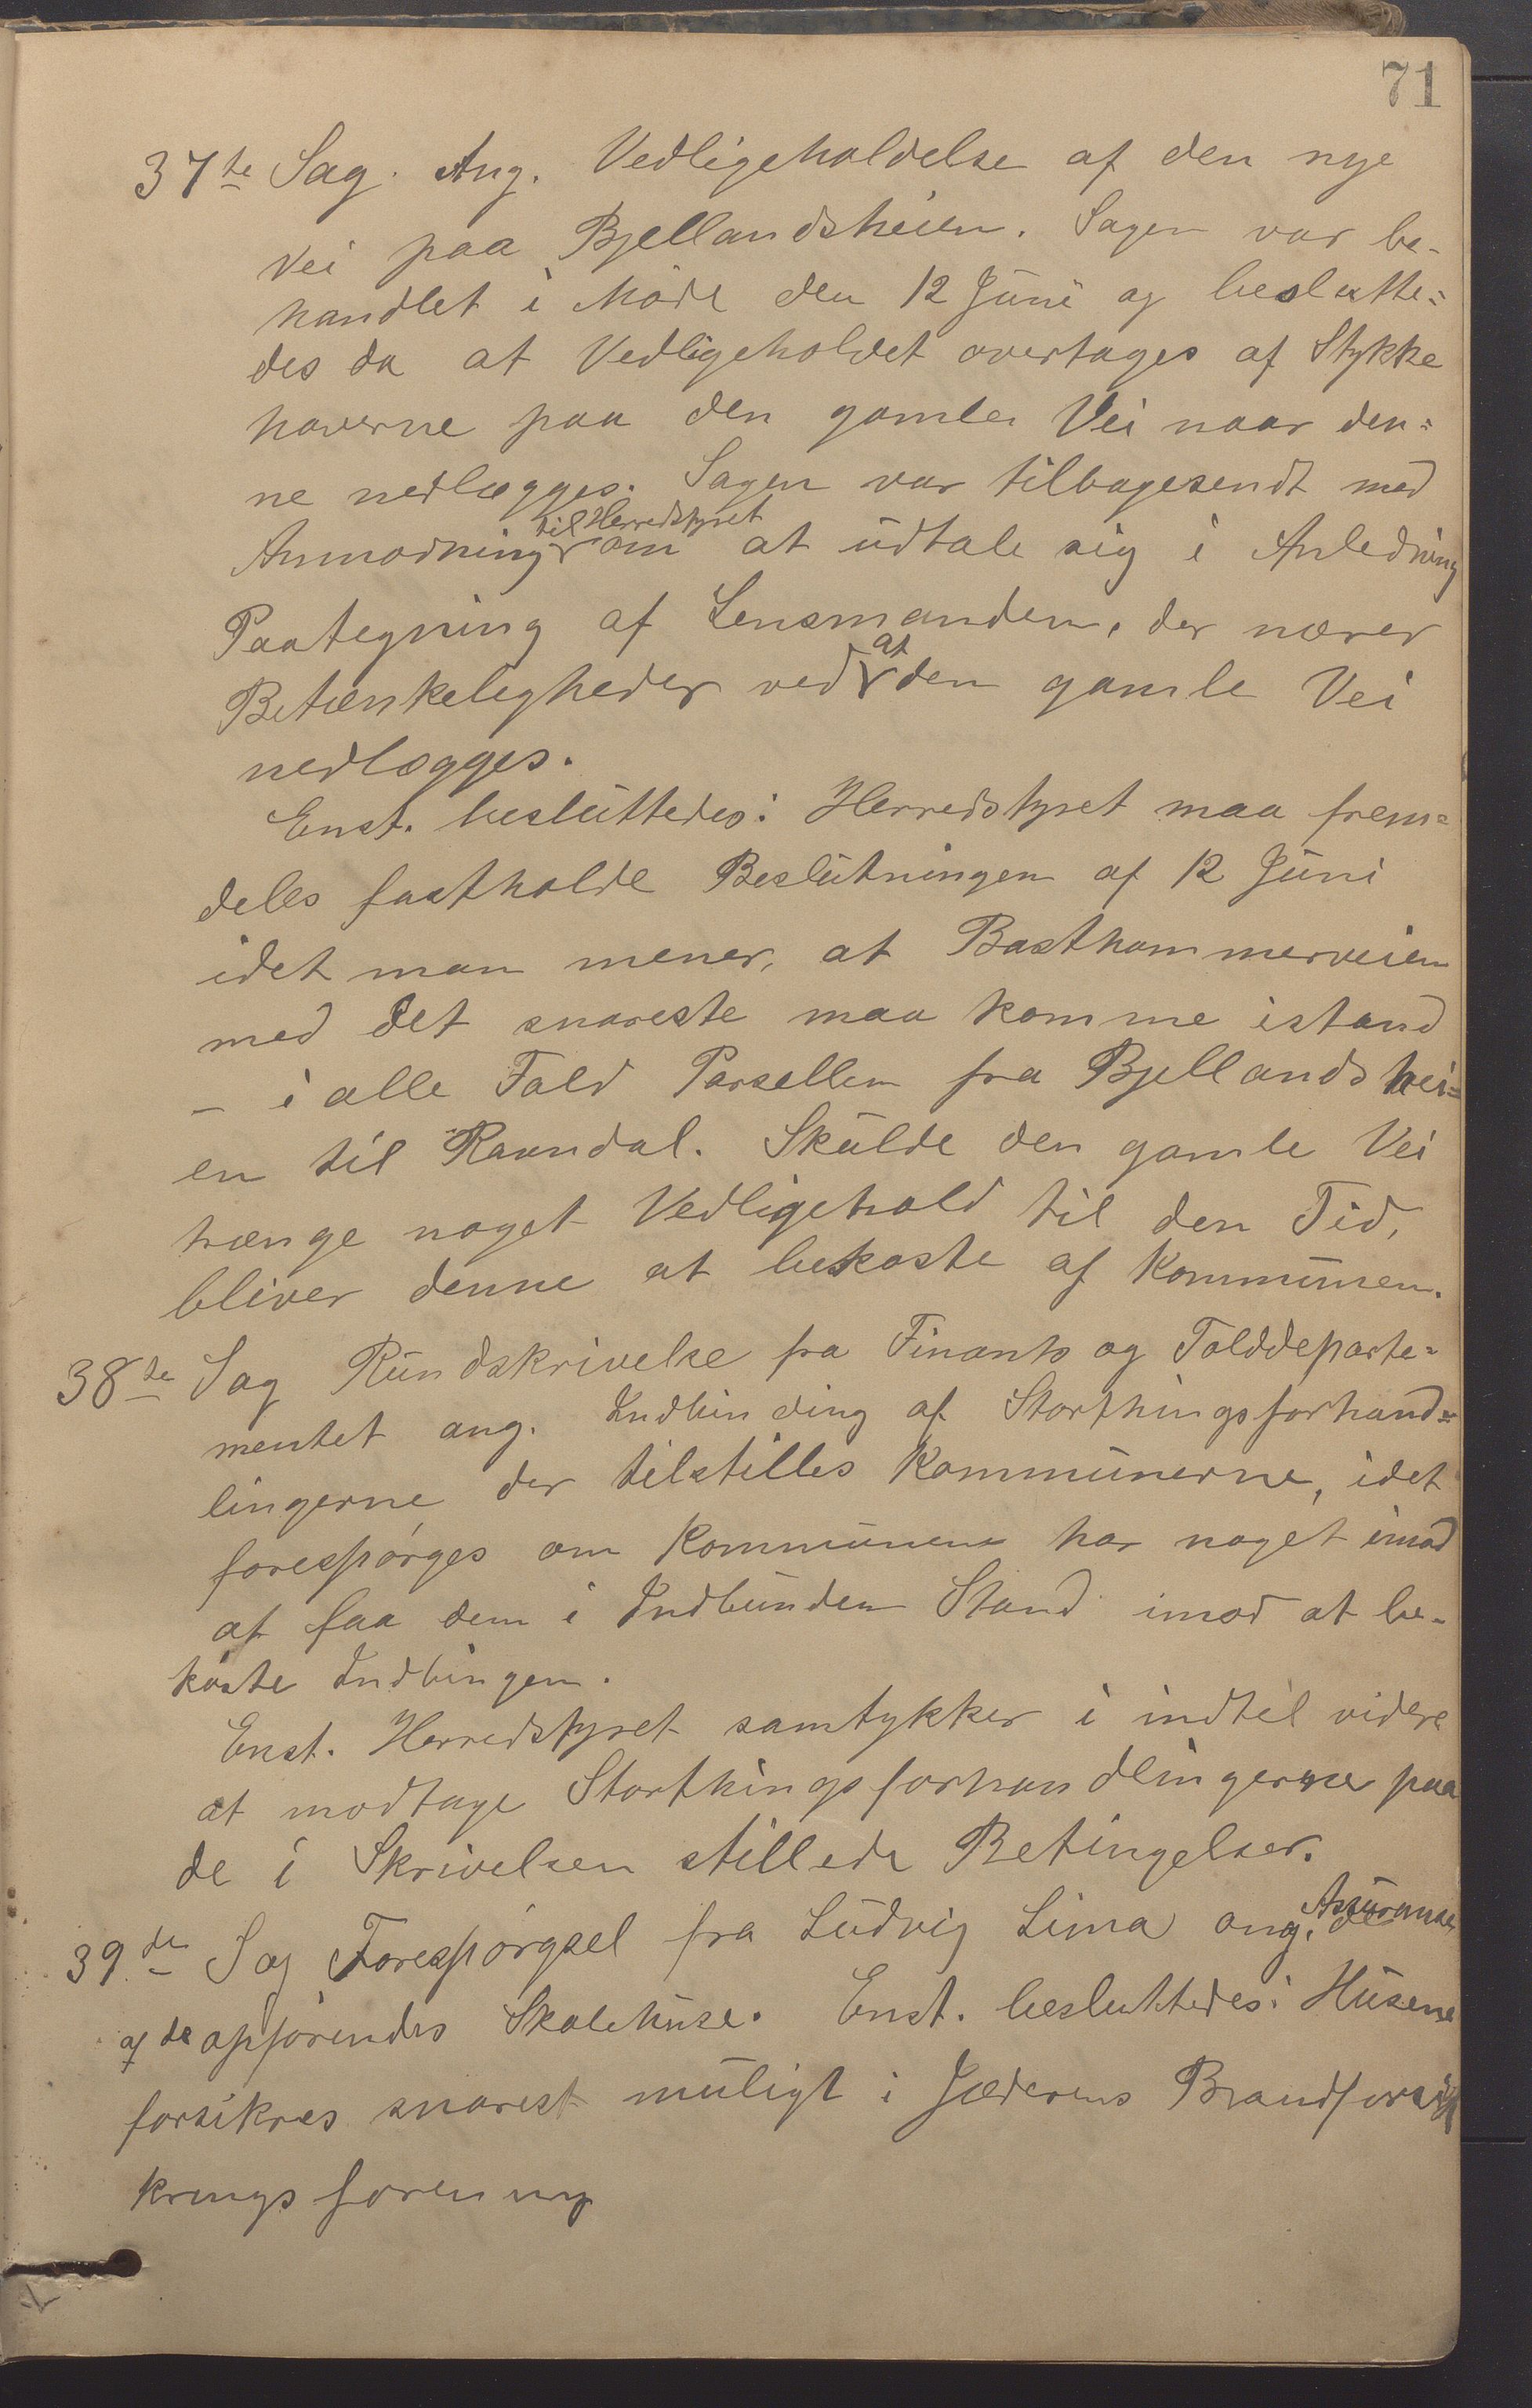 71
37te Sag. Ang. Vedligeholdelse af den nye
Vei paa Bjellandsheien. Sagen var be-
handlet i Møde den 12 Juni og beslutte=
des da at Vedligeholdet overtages af Stykke
haverne paa den gamle Vei naar den=
ne nedlægges. Sagen var tilbagesendt med
til Herredstyret
Anmodning om at udtale sig i Anledning
Paategning af Lensmanden, der nærer
at
Betænkeligheder ved den gamle Vei
nedlægges.
Enst. besluttedes: Herredstyret maa frem=
deles fastholde Beslutningen af 12 Juni
idet man mener, at Basthammerveien
med det snareste maa komme istand
- i alle Fald Parsellen fra Bjellandshei=
en til Ravndal. Skulde den gamle Vei
trænge noget Vedligehold til den Tid,
bliver denne at bekoste af Kommunen.
38te Sag Rundskrivelse fra Finants og Tolddeparte=
mentet ang. Indbinding af Storthingsforhand=
lingerne der tilstilles Kommunerne, idet
forespørges om Kommunene har noget imod
at faa dem i Indbunden Stand imod at be-
koste Indbingen.
Enst. Herredstyret samtykker i indtil videre
at modtage Storthingsforhandlingerne paa
de i Skrivelsen stillede Betingelser.
Assuranse
39de Sag Forespørgsel fra Ludvig Lima ang. de
af de opførendes Skolehuse. Enst. besluttedes: Husene
forsikres snarest muligt i Jæderens Brandforsik
kringsforening